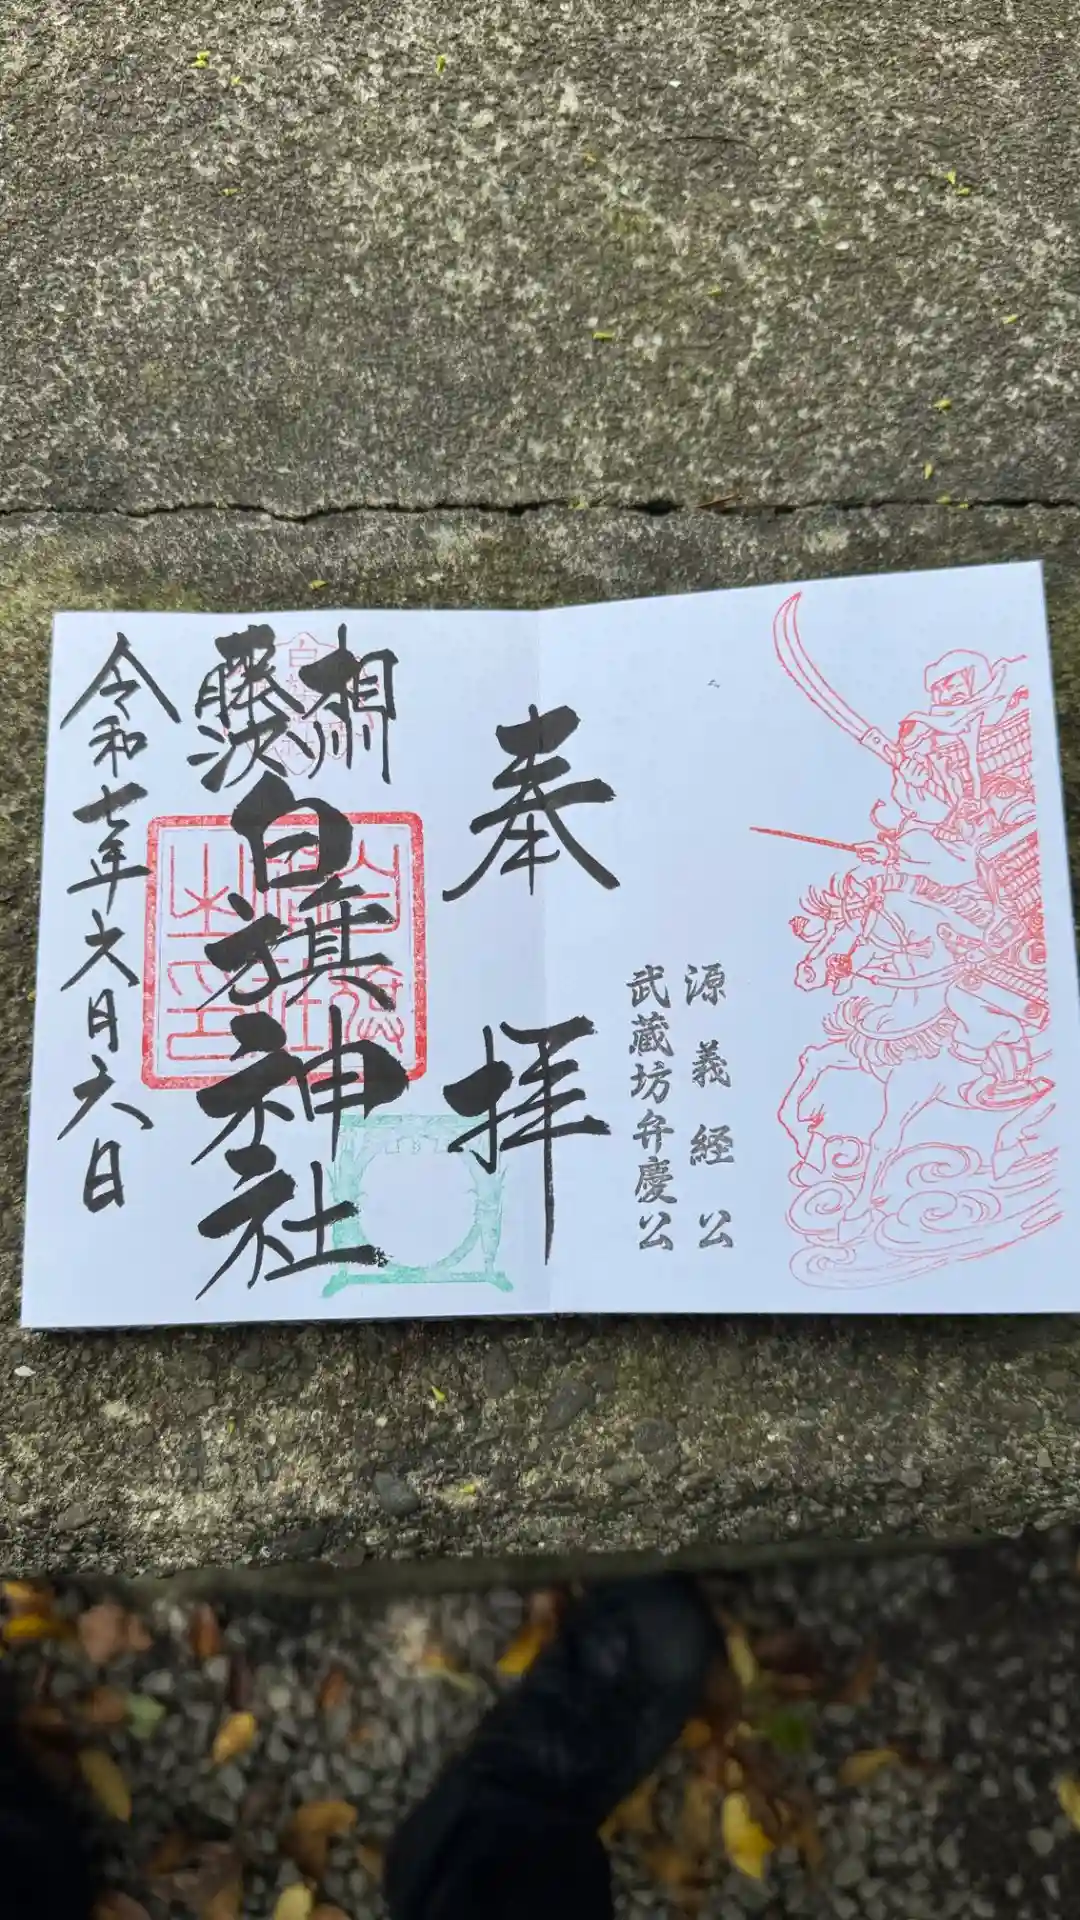 源義経公
武蔵坊弁慶公
奉拝
相州
藤沢
白旗神社
令和七年六月六日